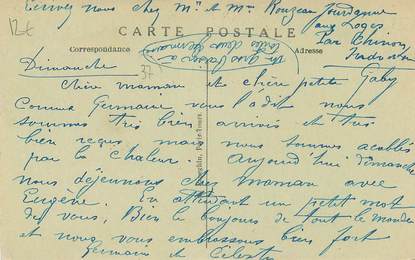 Ecrivez nous chez Mr et Mme Rouzeau Jourdanne
aux Loges
Par Chinon
Indre et Loire
12€
CARTE POSTALE
Correspondance
Adresse
un gros baiser à
toutes deux
Germaine
37
Dimanche
Chère maman et chère petite Gaby
Comme Germaine vous l'a dit nous
sommes très bien arrivés et très
bien reçus mais nous sommes accablés
par la chaleur. Aujourd'hui dimanche
nous déjeunons chez maman avec
Eugène. En attendant un petit mot
de vous, Bien le bonjour de tout le monde
et nous vous embrassons bien fort
Germaine et Célestin